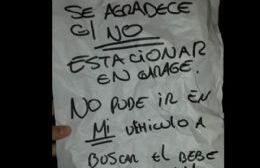 SE AGRADECE
C/ NO
ESTACIONAR
EN GARAGE.
NO PUDE IR EN
MI VEHICULO A
BUSCAR EL BEBE